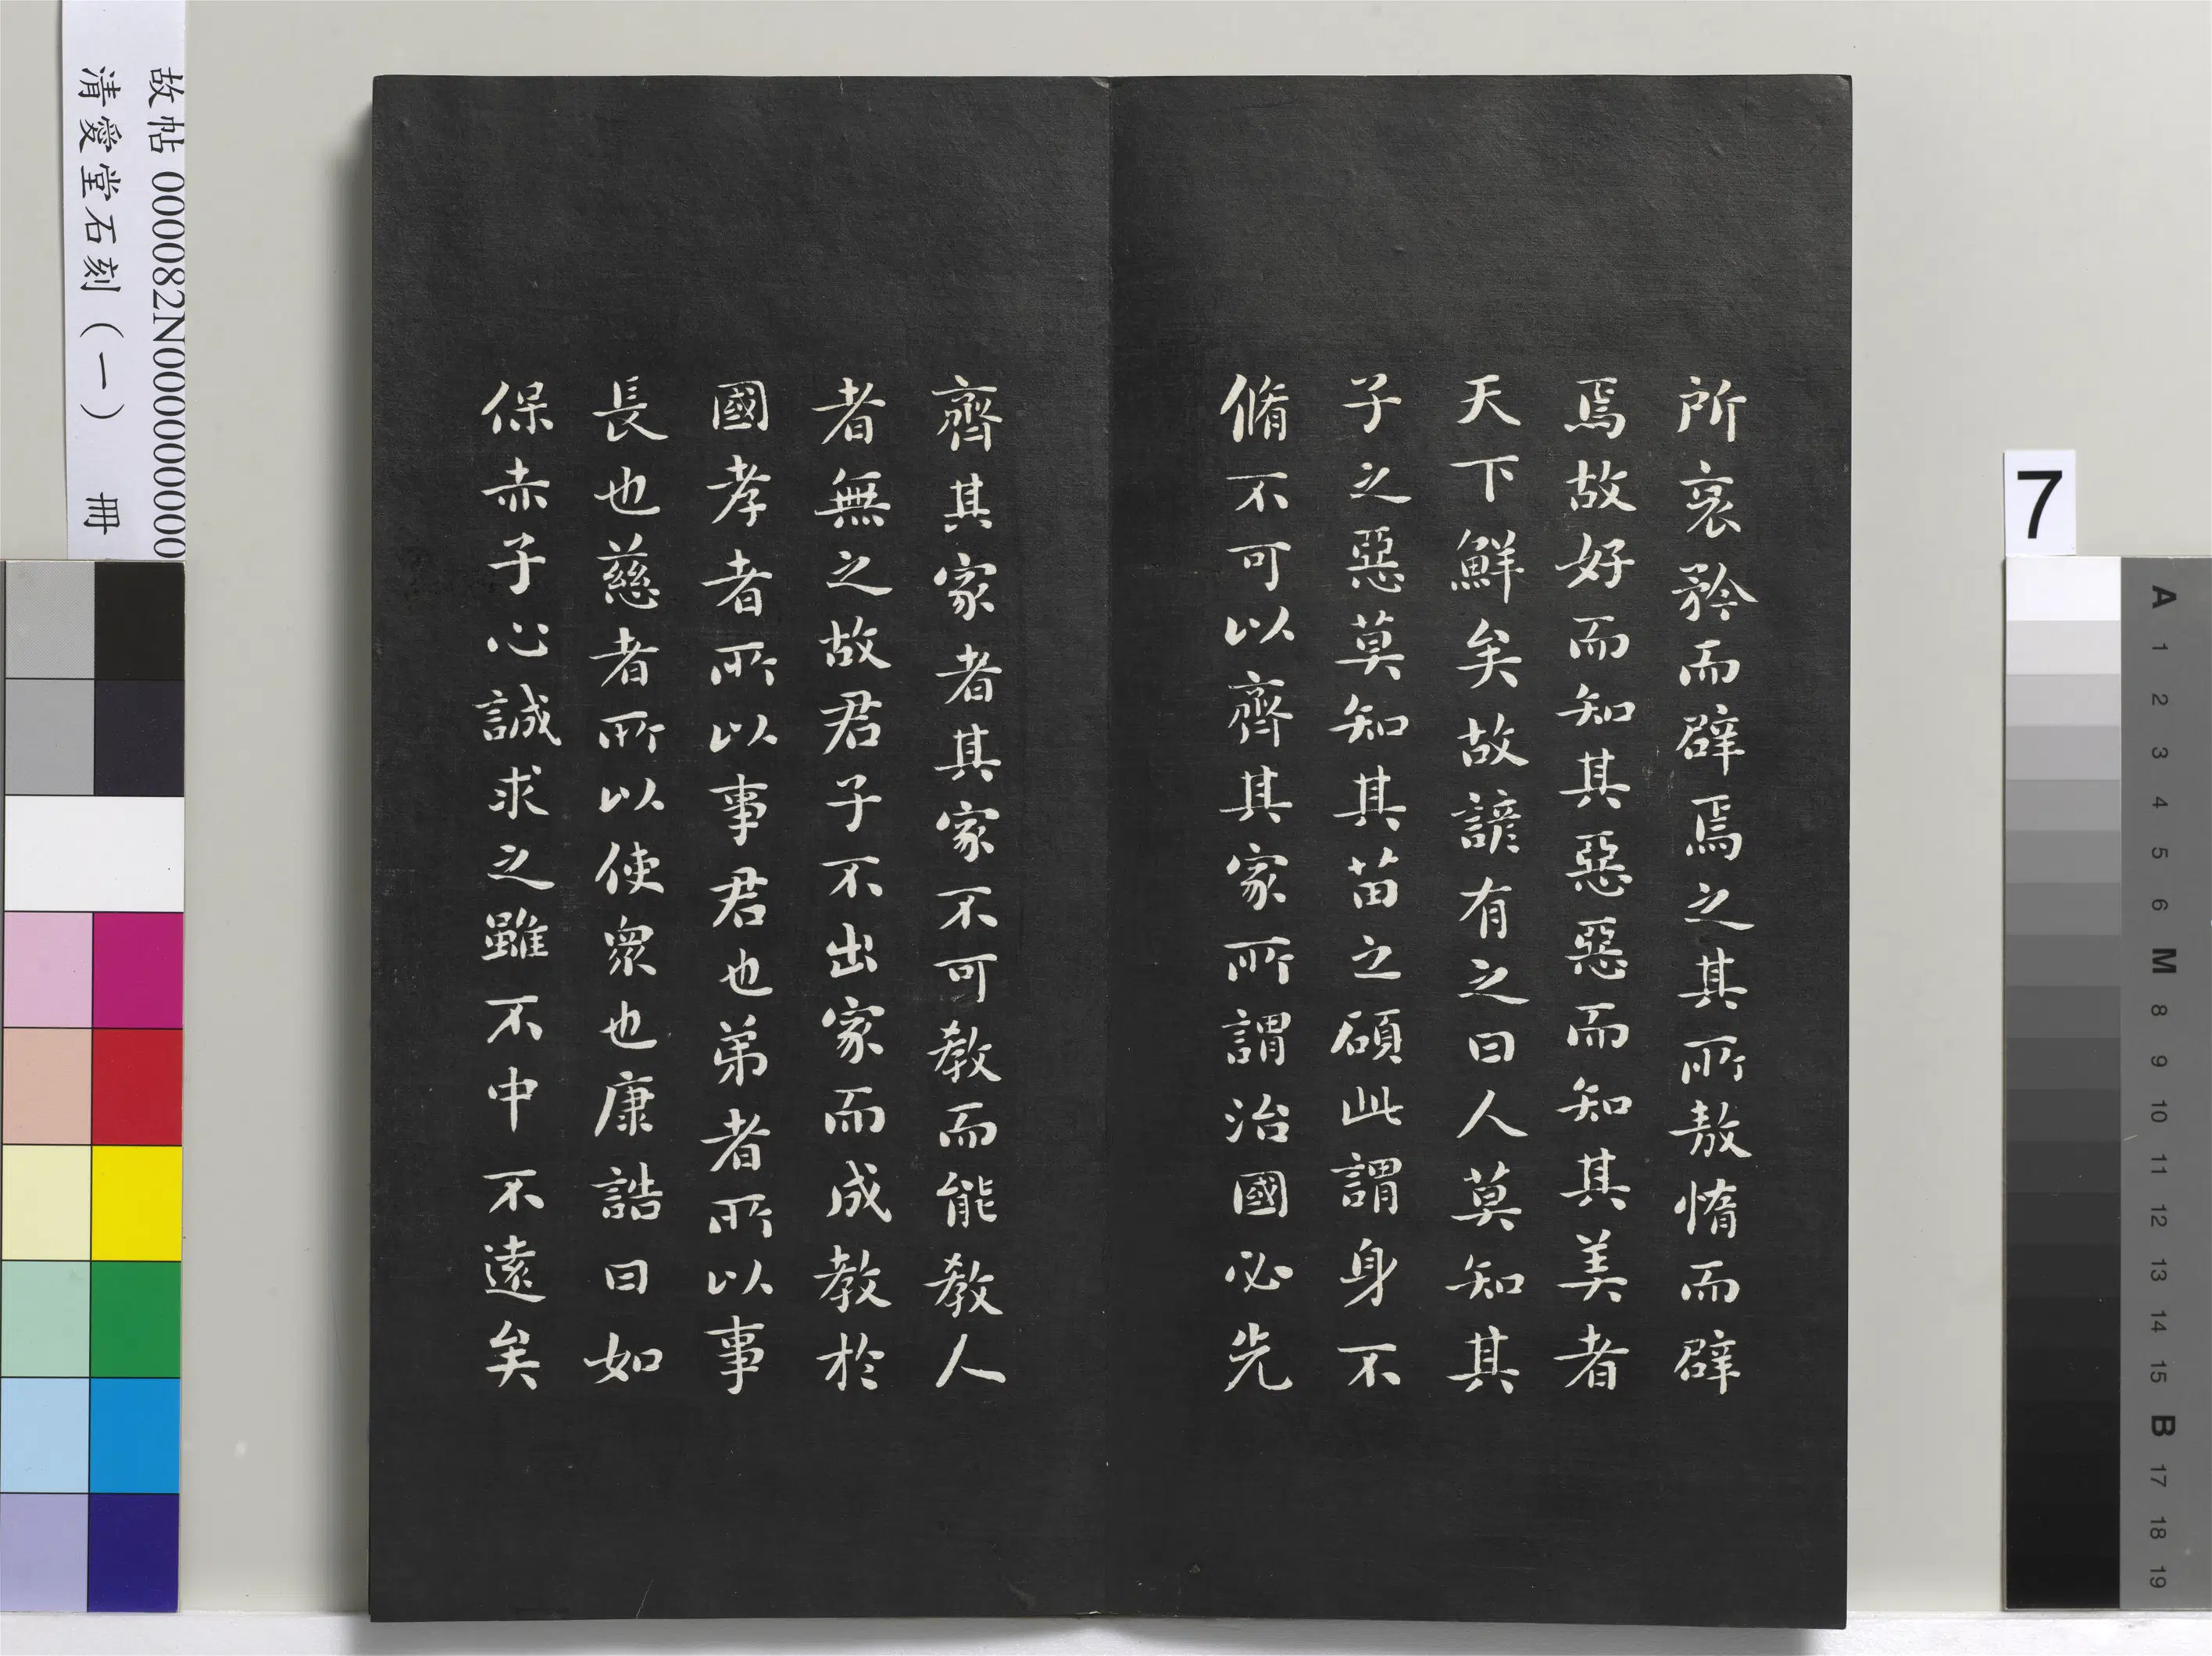 所哀矜而辟焉之其所敖惰而辟
焉故好而知其惡惡而知其美者
天下鮮矣故諺有之曰人莫知其
子之惡莫知其苗之碩此謂身不
脩不可以齊其家所謂治國必先
齊其家者其家不可教而能教人
者無之故君子不出家而成教於
國孝者所以事君也弟者所以事
長也慈者所以使眾也康誥曰如
保赤子心誠求之雖不中不遠矣
故帖 000082N000000000
清愛堂石刻(一) 冊
7
A
1
2
3
4
5
6
M
8
9
10
11
12
13
14
15
B
17
18
19